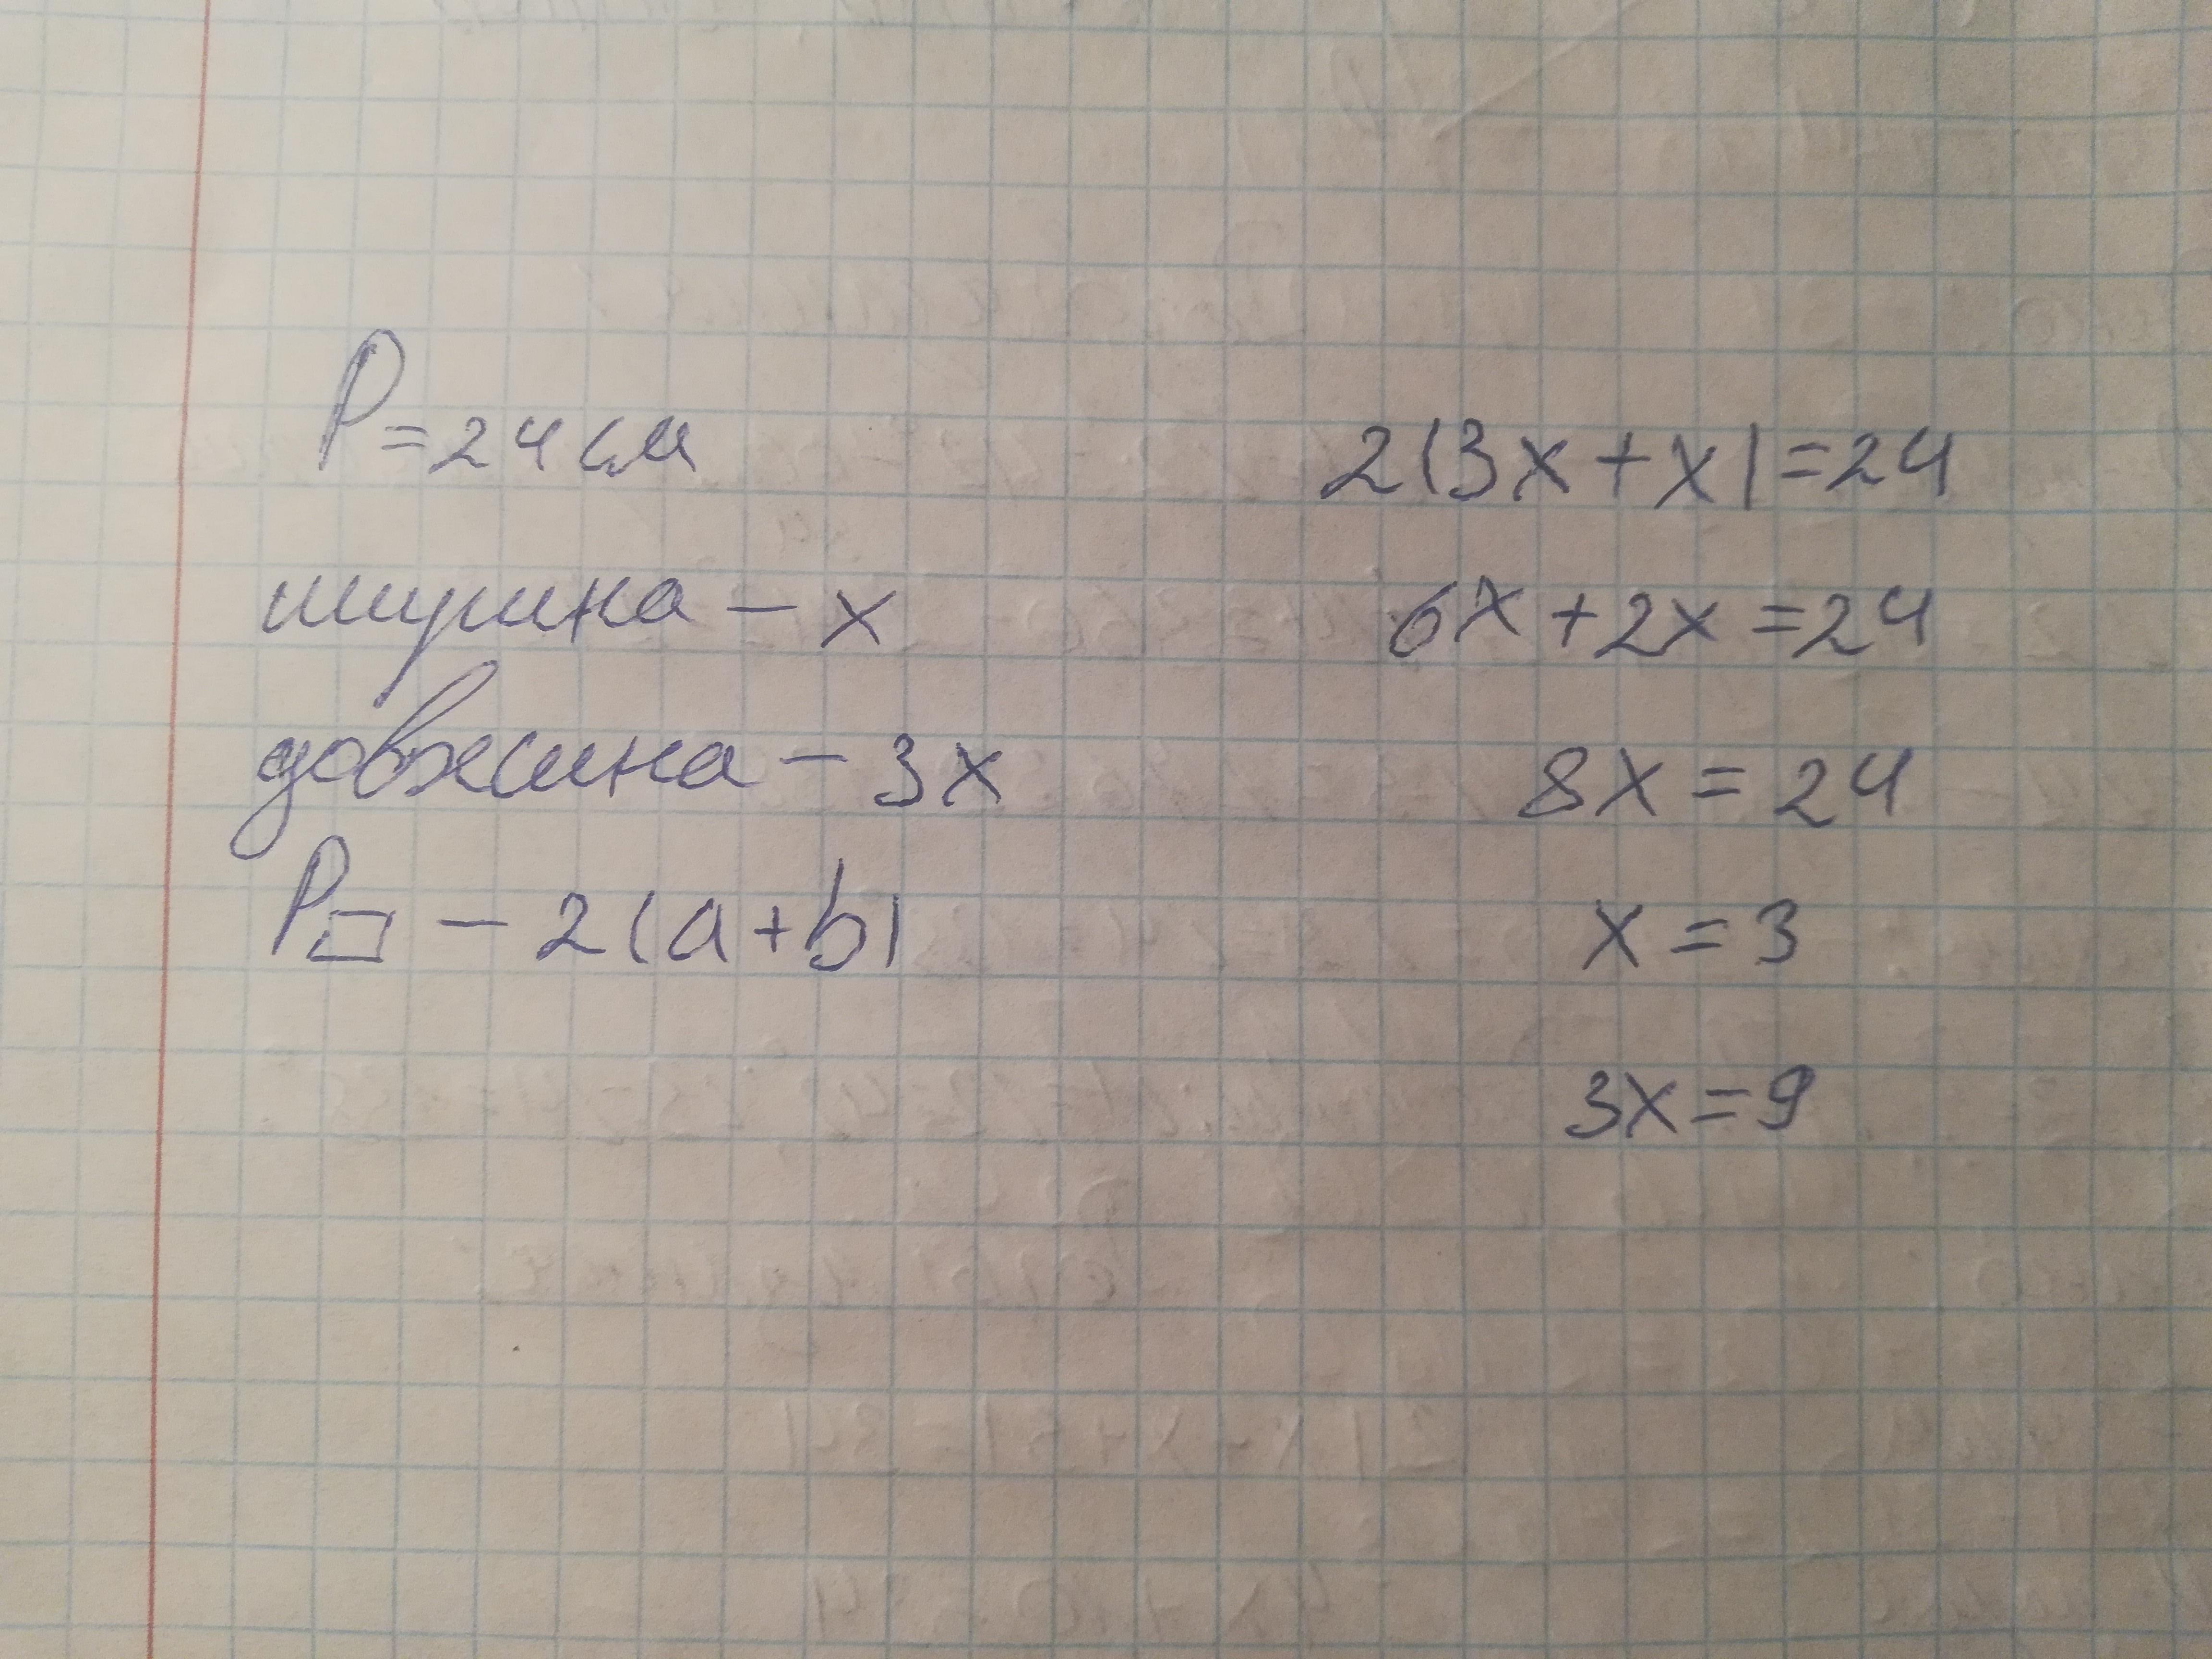 P = 24 см
ширина - x
довжина - 3x
P□ - 2(a+b)
2(3x+x)=24
6x+2x=24
8x=24
x=3
3x=9